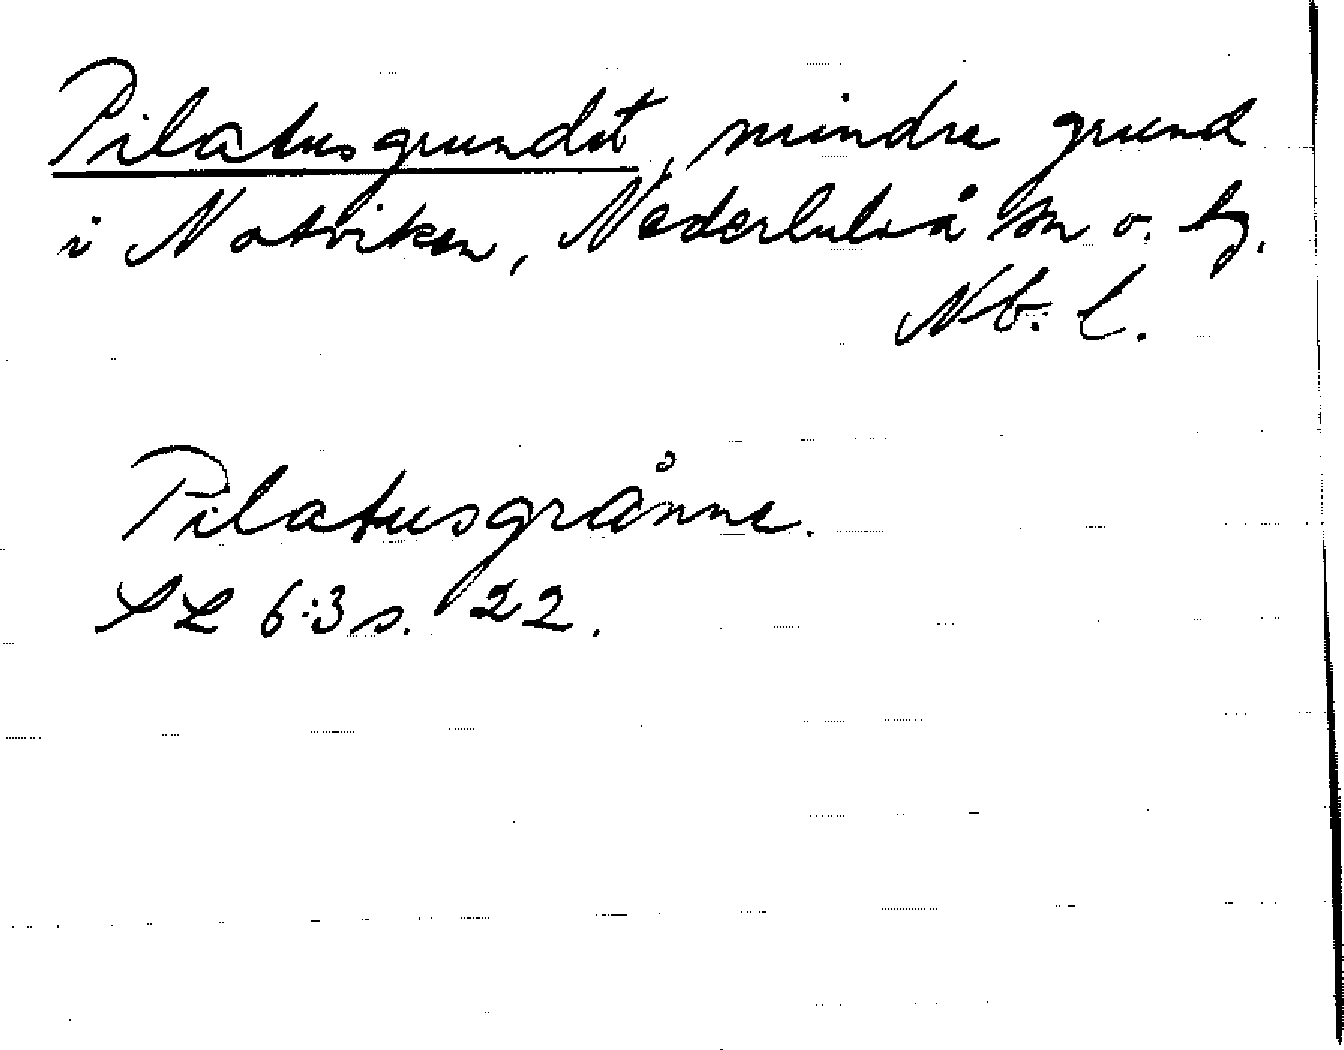 Pilatusgrundet, mindre grund
i Notviken, Nederluleå sn o. tg.
Nb. l.
Pilatusgrånne.
SL 6:3 s. 22.